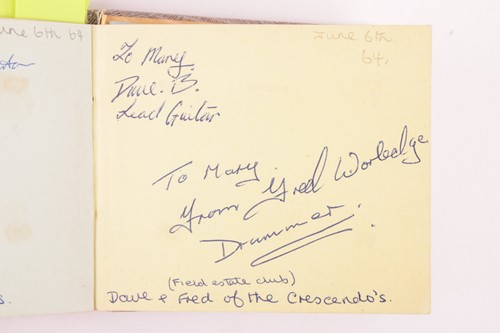 une 6th 64
June 6th
64.
To Mary.
Dave. B.
Lead Guitar
To Mary
From Fred Worledge
Drummer.
(Field estate club)
Dave & Fred of the Crescendo's.
s.